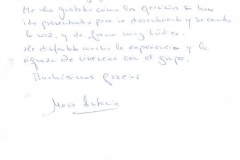 Me ha gustado como los ejercicios se han
ido presentando para ir descubriendo y sacando
la voz, y de forma muy lúdica.
He disfrutado mucho la experiencia y la
riqueza de vivencias con el grupo.
Muchísimas gracias